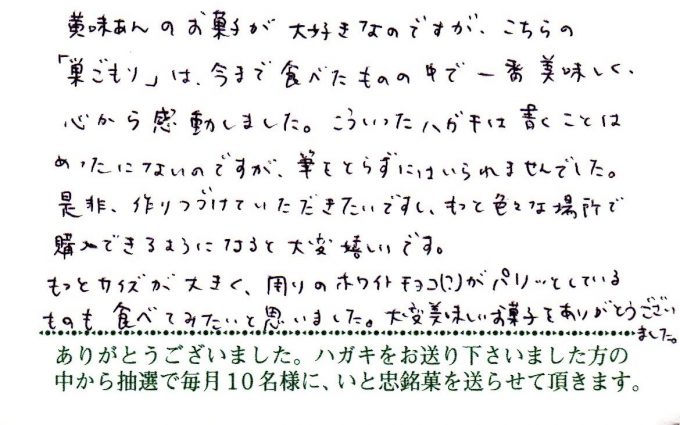 黄味あんのお菓子が大好きなのですが、こちらの
「巣ごもり」は、今まで食べたものの中で一番美味しく、
心から感動しました。こういったハガキは書くことは
めったにないのですが、筆をとらずにはいられませんでした。
是非、作りつづけていただきたいですし、もっと色々な場所で
購入できるようになると大変嬉しいです。
もっとサイズが大きく、周りのホワイトチョコ(?)がパリッとしている
ものも食べてみたいと思いました。大変美味しいお菓子をありがとうござい
ました。
ありがとうございました。ハガキをお送り下さいました方の
中から抽選で毎月10名様に、いと忠銘菓を送らせて頂きます。